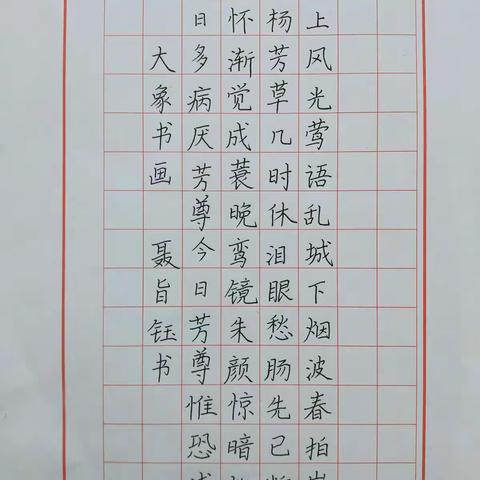 上风光莺语乱城下烟波春拍
杨芳草几时休泪眼愁肠先已
怀渐觉成蓑晚鸾镜朱颜惊暗
日多病厌芳尊今日芳尊惟恐
大象书画 聂旨钰书